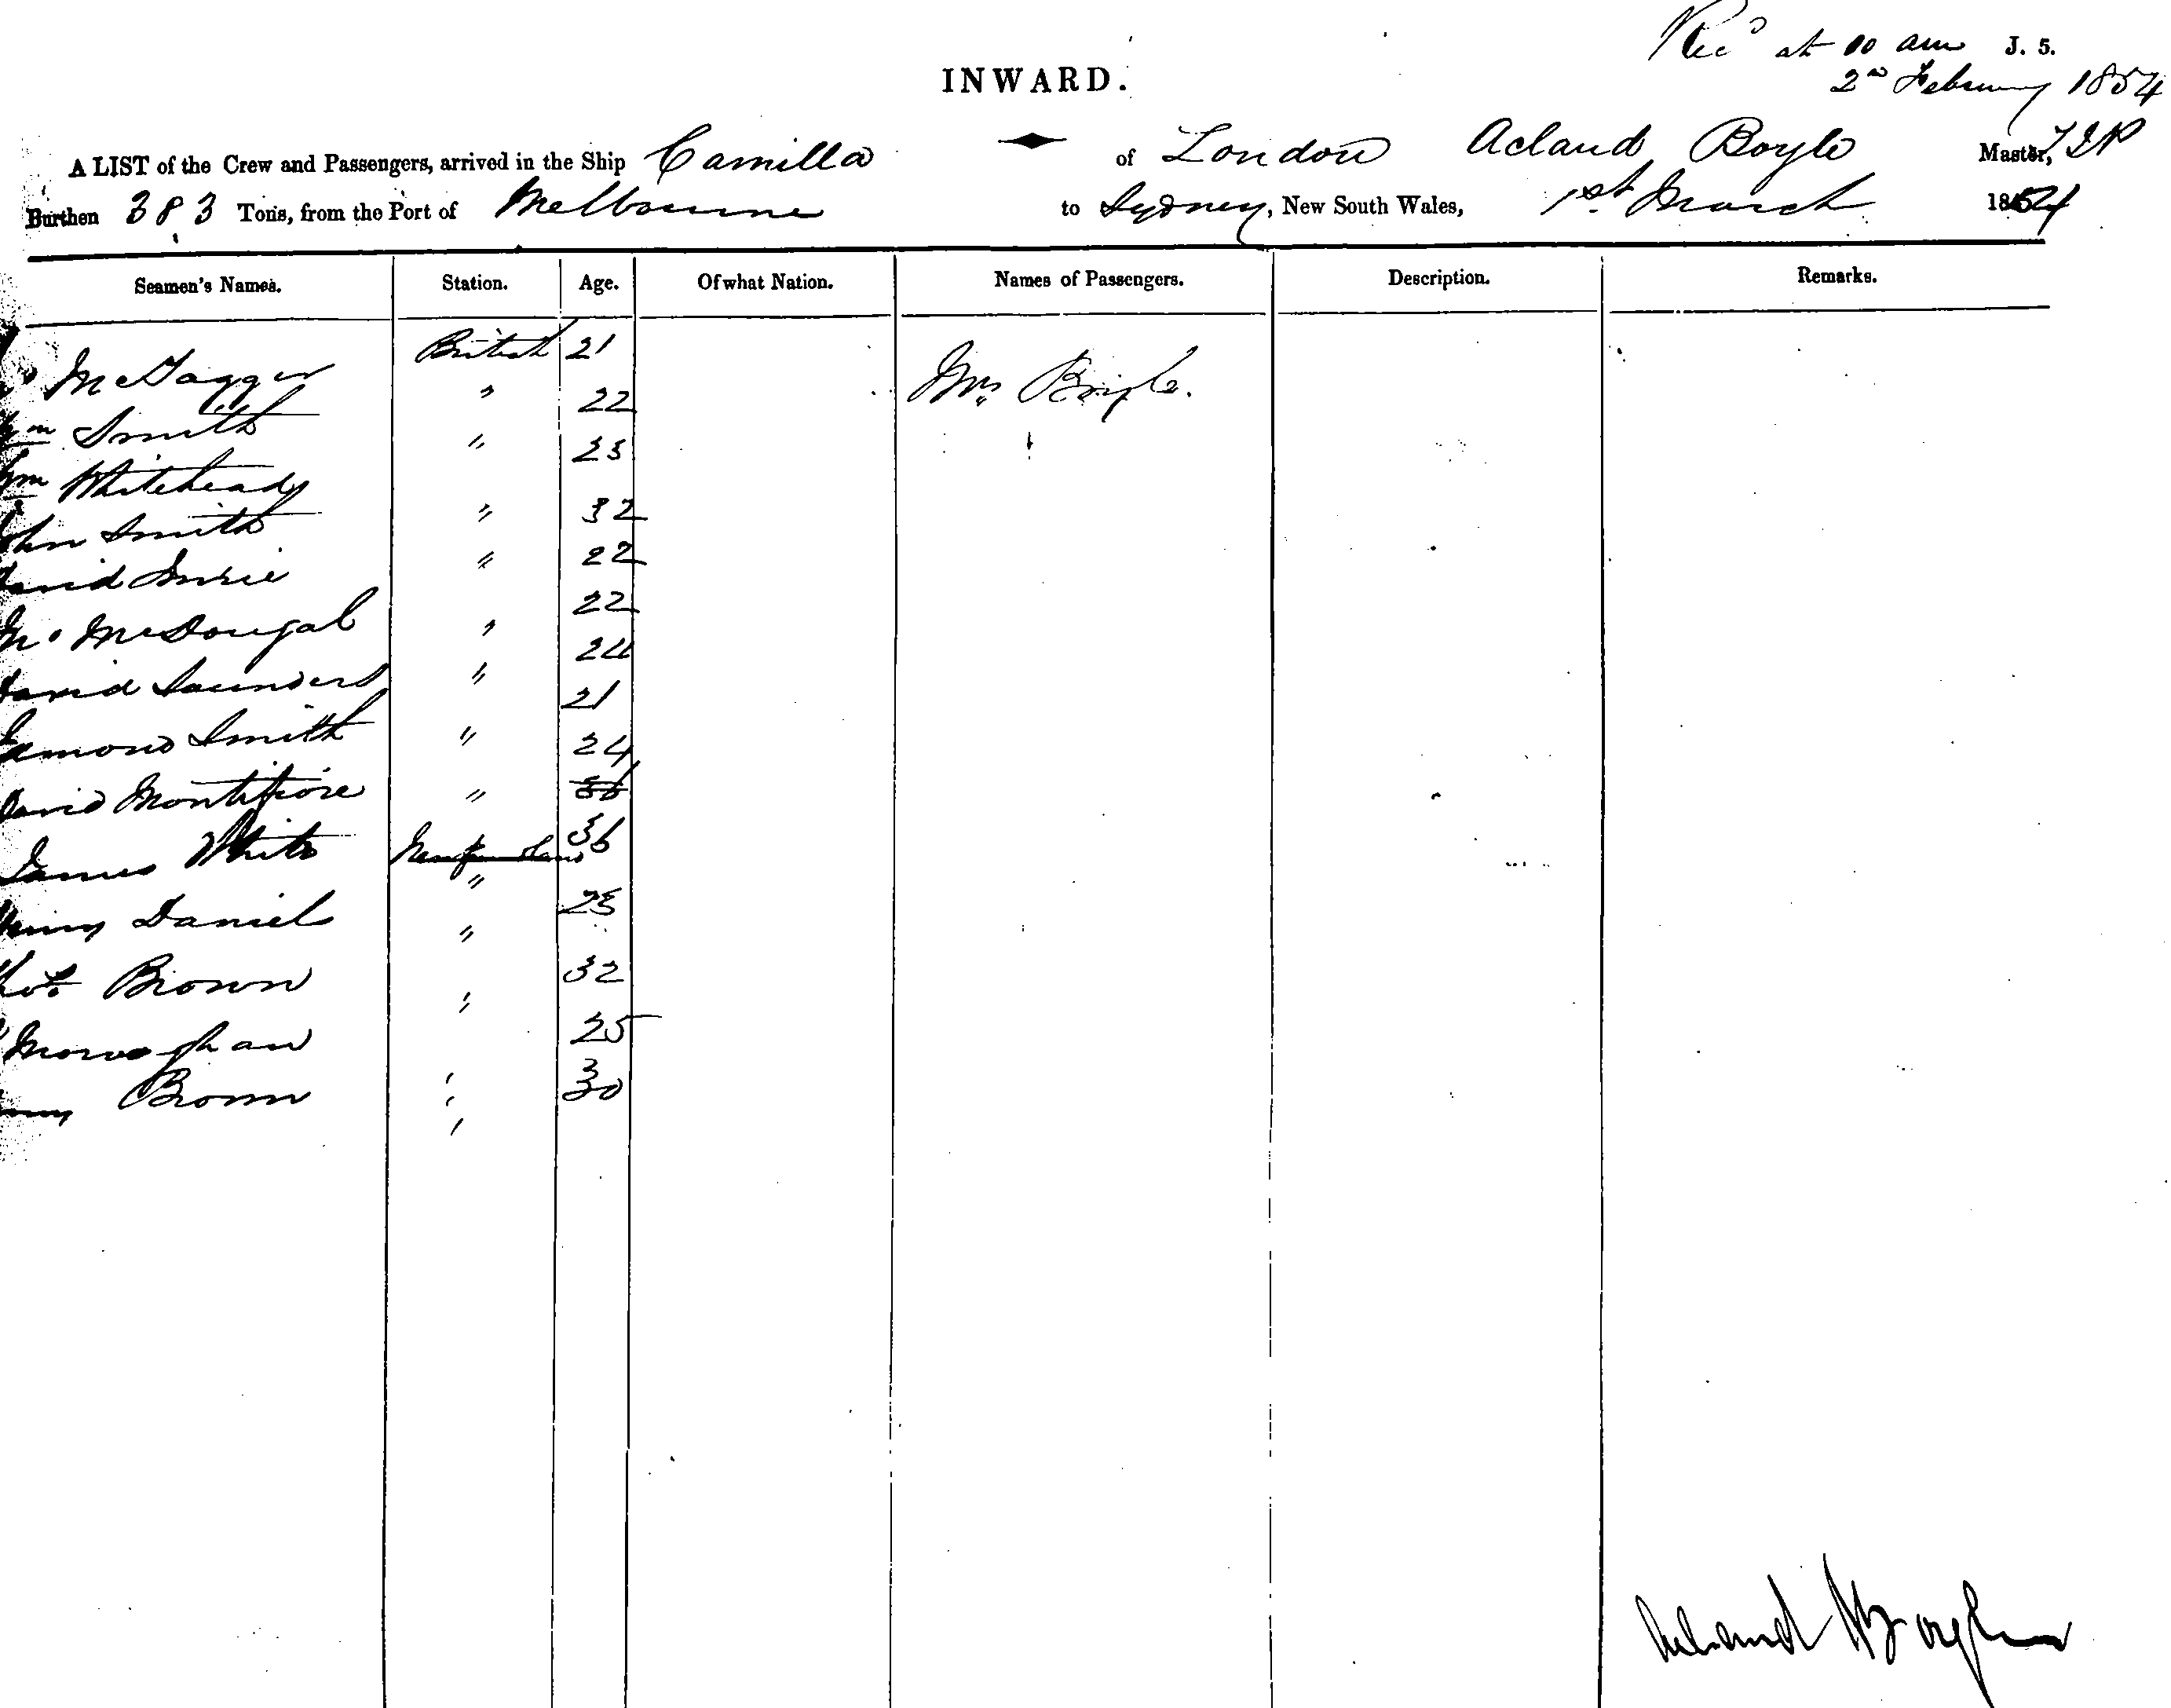 Recd at 10 am J. 5.
2nd February 1854
INWARD.
A LIST of the Crew and Passengers, arrived in the Ship Camilla of London Acland Boyle Master,
Burthen 383 Tons, from the Port of Melbourne to Sydney, New South Wales, 1st March 1854
Seamen's Names. Station. Age. Of what Nation. Names of Passengers. Description. Remarks.
McTagger British 21 Mrs Boyle.
Wm Smith " 22
Wm Whitehead " 23
John Smith " 32
David " 22
McDougal " 22
David Saunders " 24
Edmond Smith " 21
David Montifiore " 24
James White Newfoundland 36
Henry Daniel " 25
Thos Brown " 32
Monaghan " 25
Henry Brown " 30
Acland Boyle